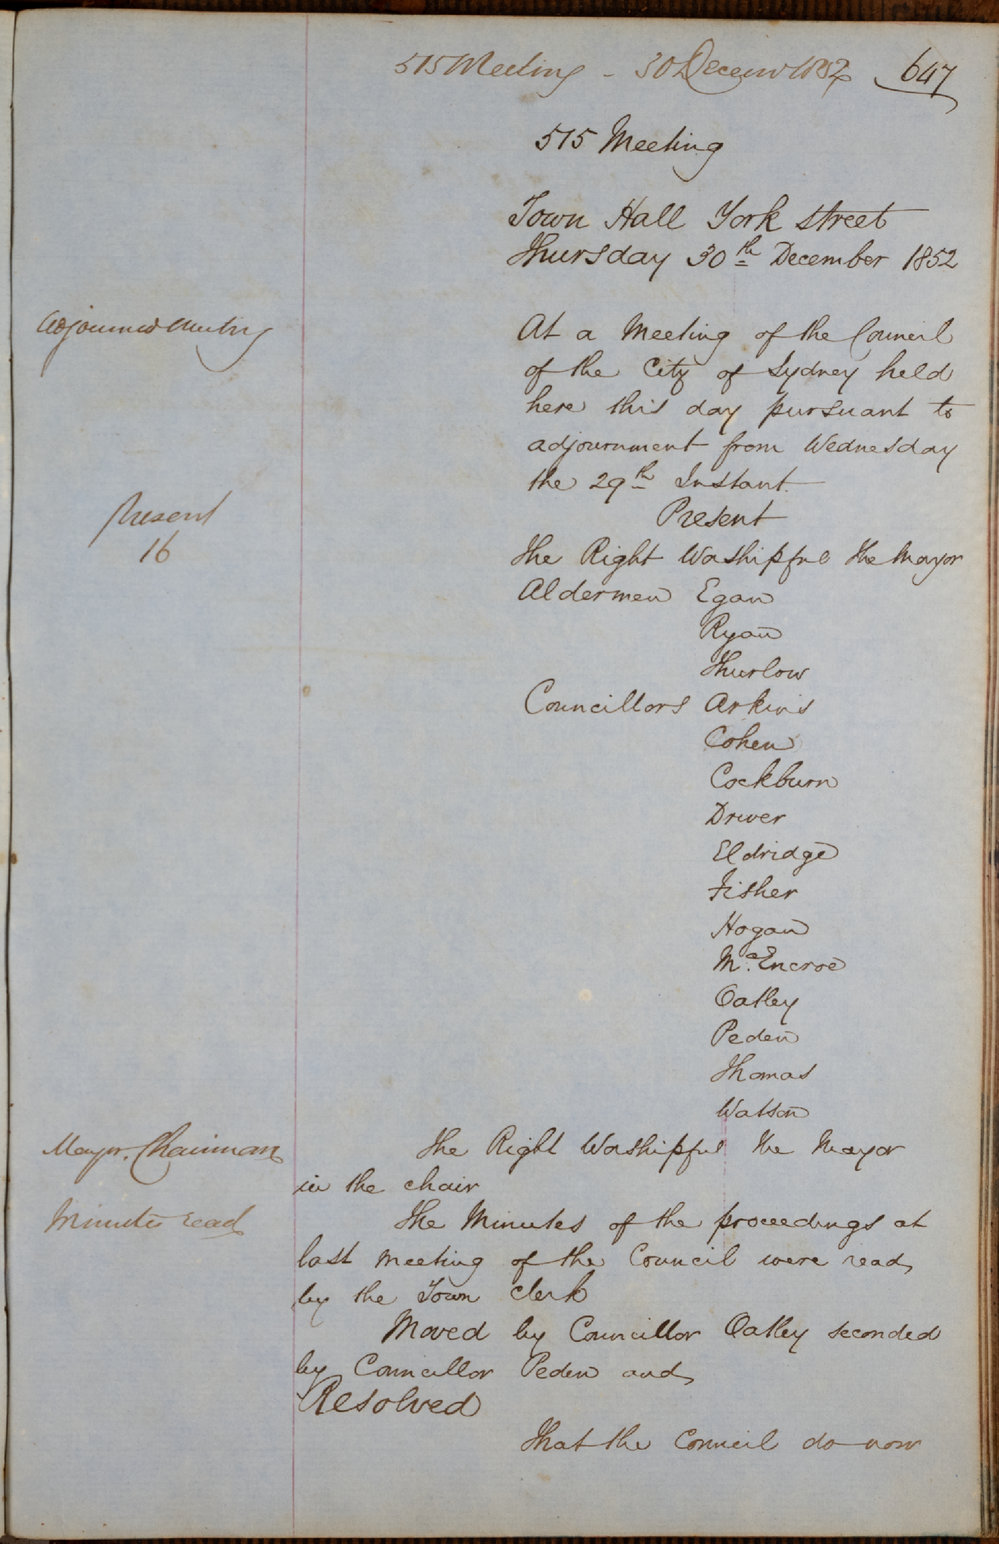 515 Meeting - 30 December 1852 647
515 Meeting
Town Hall York Street
Thursday 30th December 1852
Adjourned Meeting
At a Meeting of the Council
of the City of Sydney held
here this day pursuant to
adjournment from Wednesday
the 29th Instant.
Present
Present
16
The Right Worshipful the Mayor
Aldermen Egan
Ryan
Thurlow
Councillors Arkins
Cohen
Cockburn
Driver
Eldridge
Fisher
Hogan
McEncroe
Oatley
Peden
Thomas
Watson
Mayor. Chairman
The Right Worshipful the Mayor
in the chair
Minutes read
The Minutes of the proceedings at
last meeting of the Council were read
by the Town Clerk
Moved by Councillor Oatley seconded
by Councillor Peden and
Resolved
That the Council do now